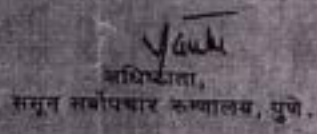 अधिष्ठाता,
ससून सर्वोपचार रूग्णालय, पुणे.